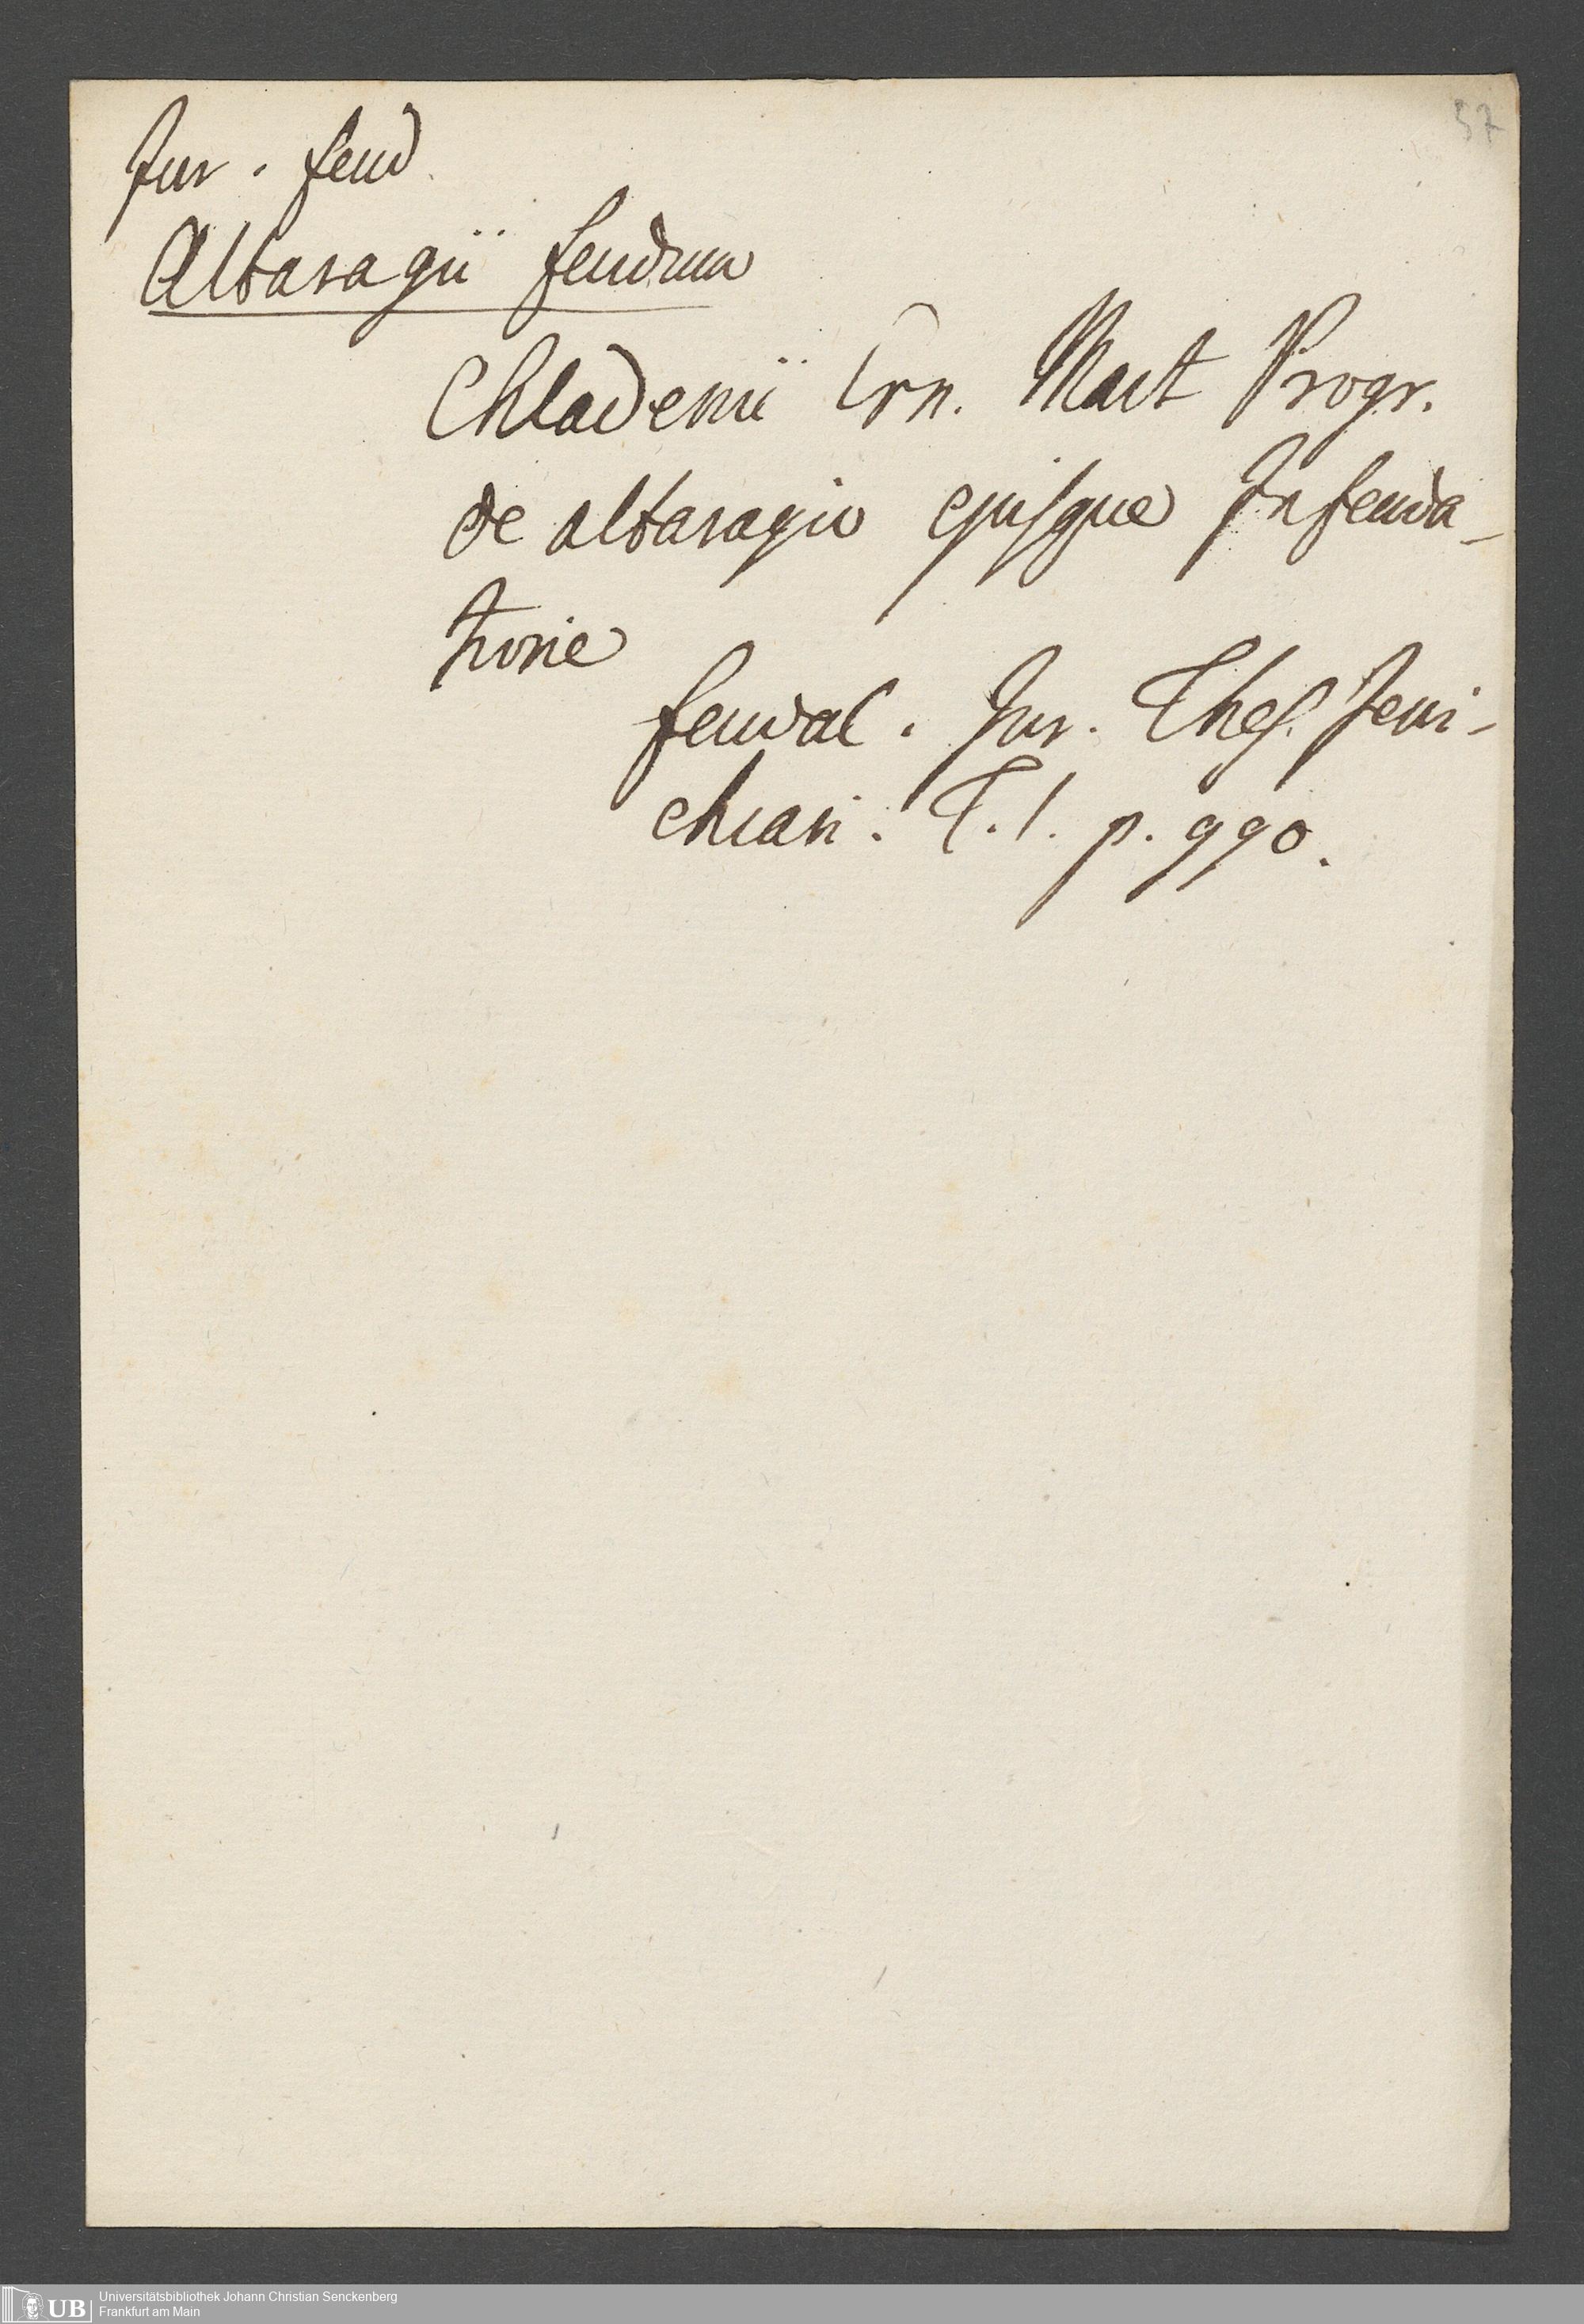 57
Jur. feud.
Altaragii feudum
Chladenii Ern. Mart Progr.
de altaragio ejusque Infeuda-
tione
feudal. Jur. Thes. Jeni-
chian. T. 1. p. 990.
UB Universitätsbibliothek Johann Christian Senckenberg
Frankfurt am Main